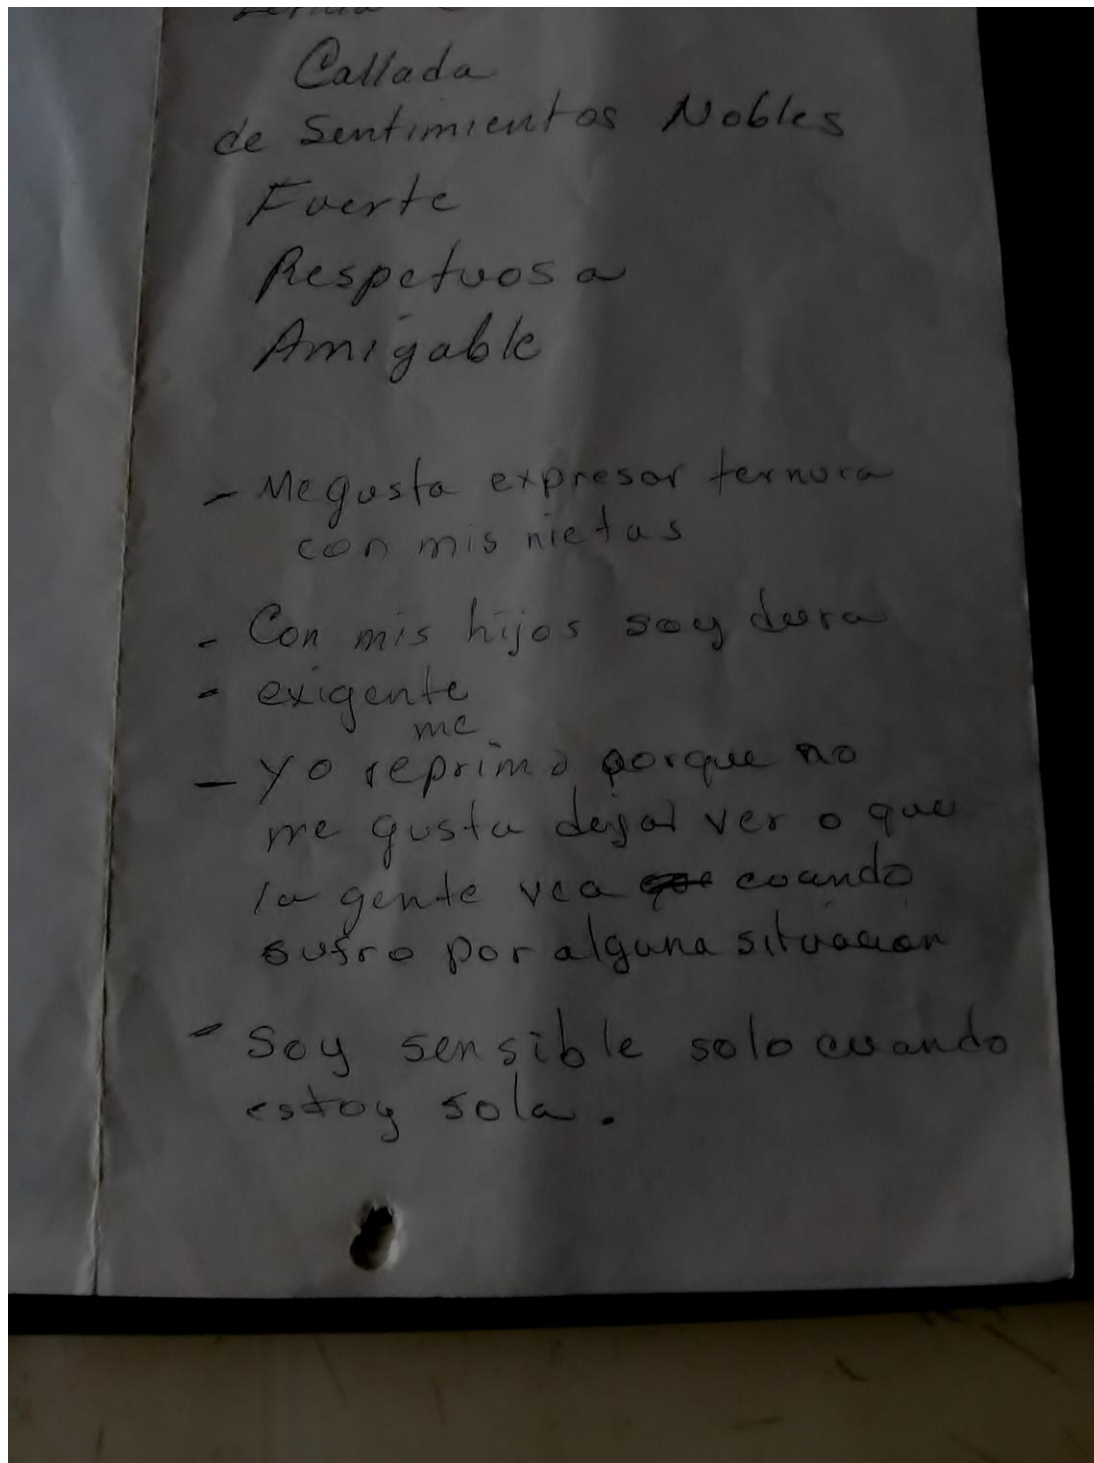 Callada
de Sentimientos Nobles
Fuerte
Respetuosa
Amigable
- Me gusta expresar ternura
con mis nietas
- Con mis hijos soy dura
- exigente
me
- Yo reprimo porque no
me gusta dejar ver o que
la gente vea cuando
sufro por alguna situación
- Soy sensible solo cuando
estoy sola.